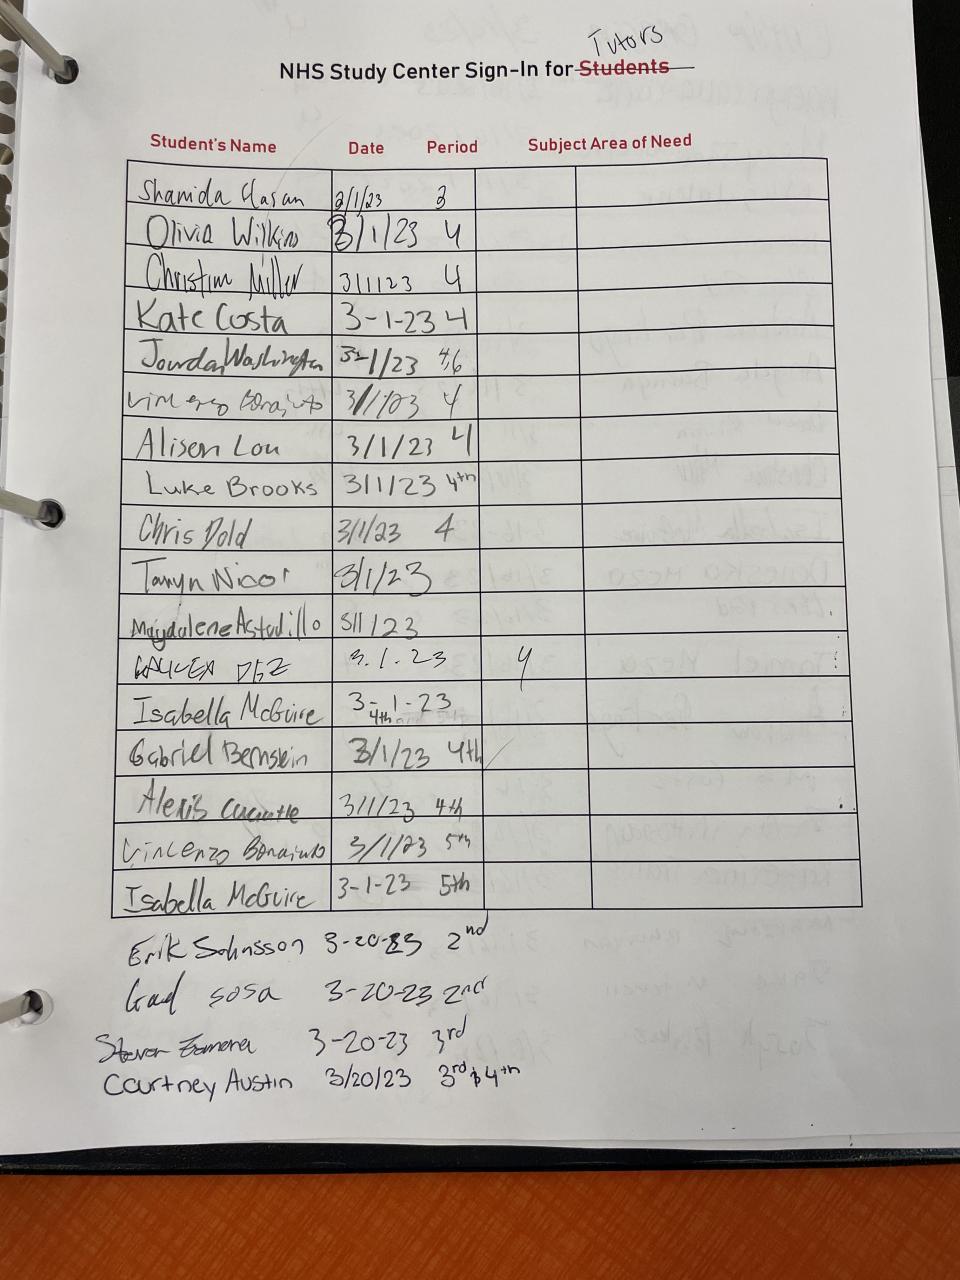 Tutors
NHS Study Center Sign-In for Students
Student's Name Date Period Subject Area of Need
Shamida Hasan 3/1/23 3
Olivia Wilkins 3/1/23 4
Miller 3/1/23 4
Kate Costa 3-1-23 4
Washington 3-1/23 4,6
3/1/23 4
Alison Lou 3/1/23 4
Luke Brooks 3/1/23 4th
Chris Dold 3/1/23 4
Taryn Nicol 3/1/23
Magdalene Astudillo 3/1/23
3.1.23 4
Isabella McGuire 3-1-23
4th
Gabriel Bernstein 3/1/23 4th
Alexis 3/1/23 4th
Vincenzo 3/1/23 5th
Isabella McGuire 3-1-23 5th
Erik 3-20-23 2nd
Gad sosa 3-20-23 2nd
Steven 3-20-23 3rd
Courtney Austin 3/20/23 3rd & 4th